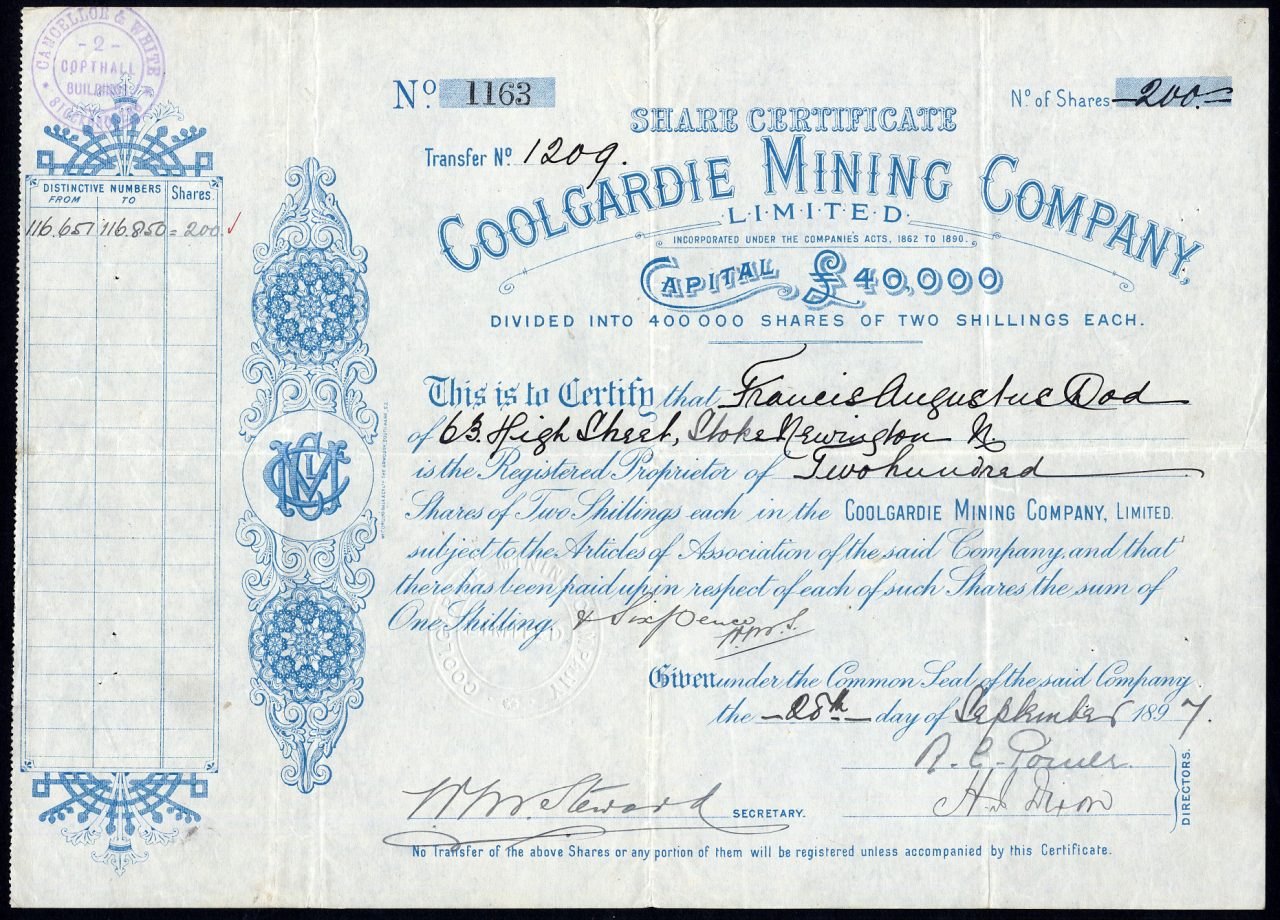 CANCELLOR & WHITE
- 2 -
COPTHALL
BUILDING
Nº 1163
Nº of Shares 200.
SHARE CERTIFICATE
Transfer Nº 1209.
COOLGARDIE MINING COMPANY,
LIMITED.
INCORPORATED UNDER THE COMPANIES ACTS, 1862 TO 1890.
CAPITAL £40,000
DIVIDED INTO 400000 SHARES OF TWO SHILLINGS EACH.
DISTINCTIVE NUMBERS Shares.
FROM TO
116,651 116,850 = 200
This is to Certify that Francis Augustus Dod
of 63 High Street, Stoke Newington N
is the Registered Proprietor of Two hundred
Shares of Two Shillings each in the COOLGARDIE MINING COMPANY, LIMITED.
subject to the Articles of Association of the said Company, and that
there has been paid up in respect of each of such Shares the sum of
One Shilling, & Sixpence
W.W.S.
COOLGARDIE MINING COMPANY LIMITED
Given under the Common Seal of the said Company
the 28th day of September 1897.
H. S. Dixon
DIRECTORS.
W. W. Steward SECRETARY.
No Transfer of the above Shares or any portion of them will be registered unless accompanied by this Certificate.